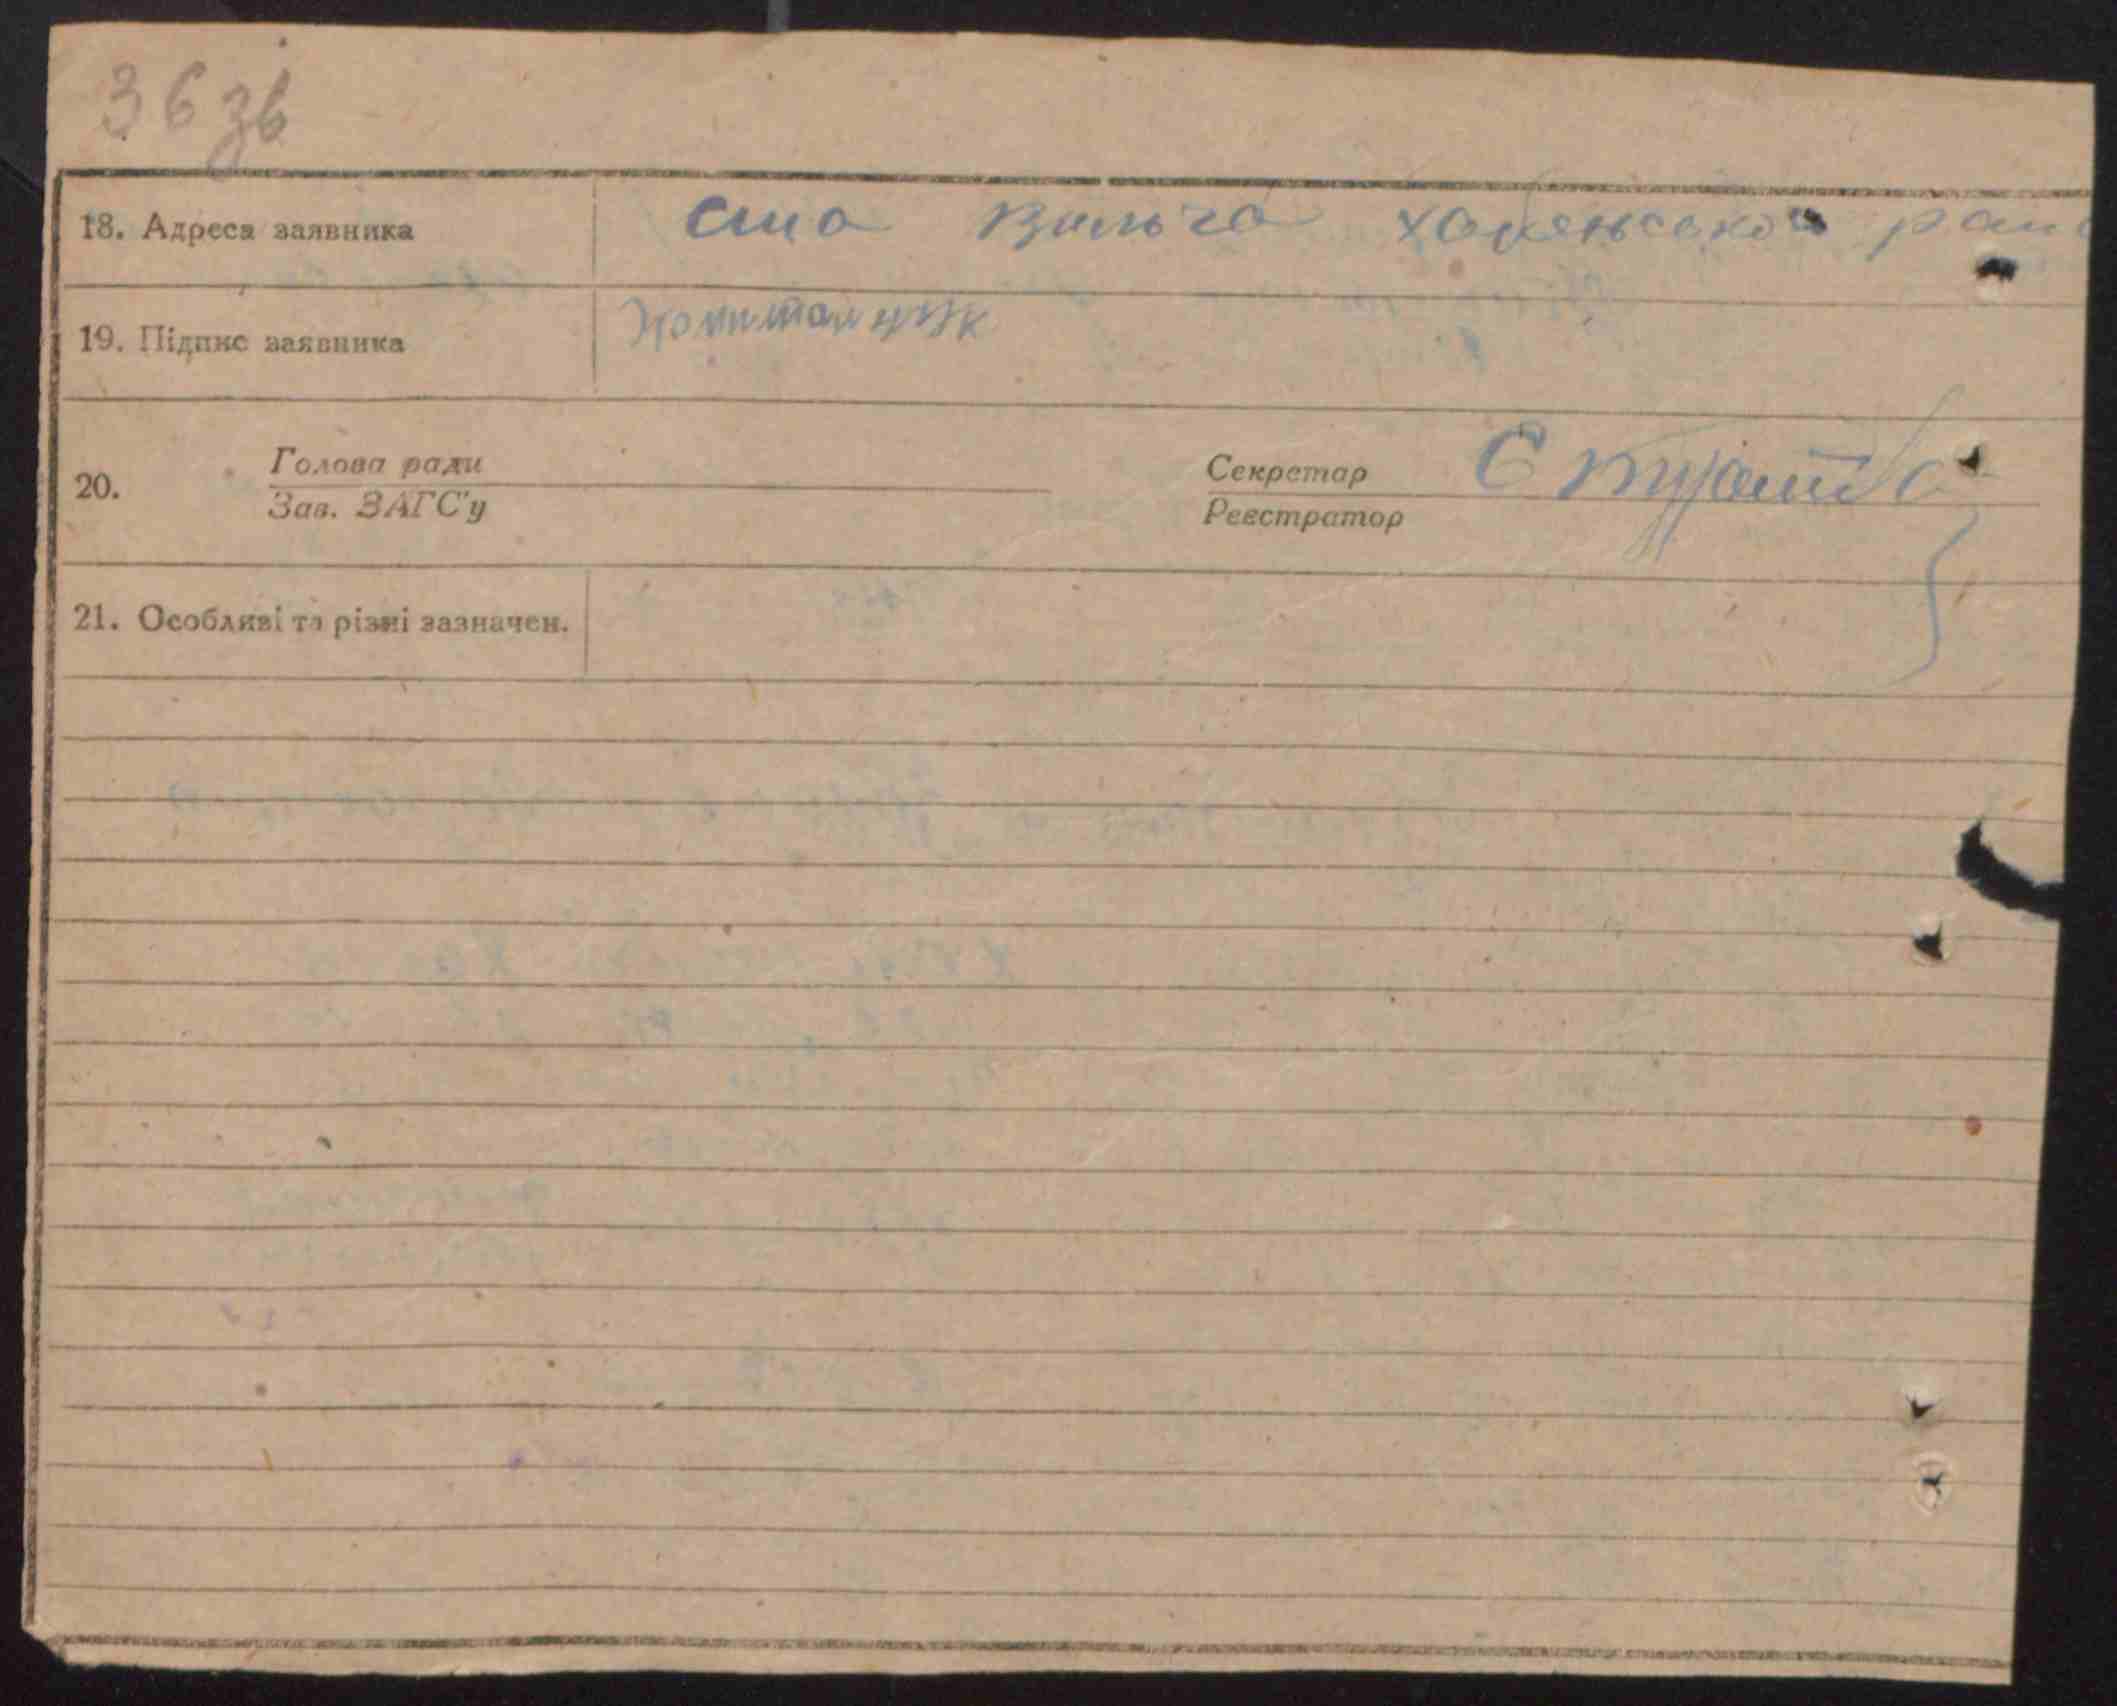 36 зв
18. Адреса заявника
ст Вильча хабенського рай
19. Підпис заявника
20. Голова ради
Зав. ЗАГС'у
Секретар
Реєстратор
21. Особливі та різні зазначен.